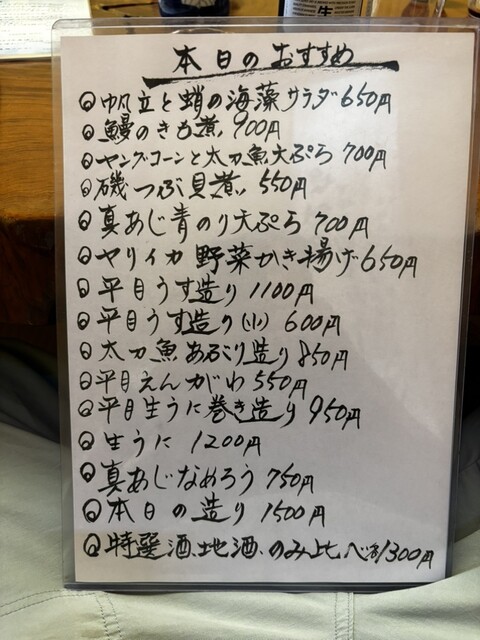 本日のおすすめ
◎帆立と蛸の海藻サラダ650円
◎鰻のきも煮 900円
◎ヤングコーンと太刀魚天ぷら 700円
◎磯つぶ貝煮 550円
◎真あじ青のり天ぷら 700円
◎ヤリイカ野菜かき揚げ650円
◎平目うす造り 1100円
◎平目うす造り(小) 600円
◎太刀魚あぶり造り850円
◎平目えんがわ550円
◎平目生うに巻き造り950円
◎生うに 1200円
◎真あじなめろう750円
◎本日の造り 1500円
◎特選酒、地酒、のみ比べ 1300円